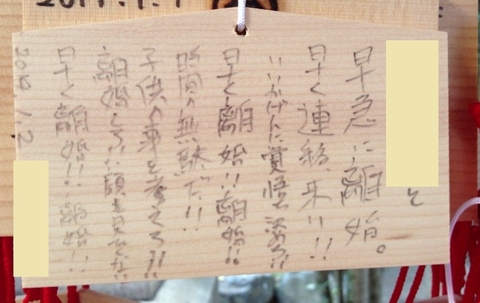 2011.1.1
と
早急に離婚。
早く連絡、来い!!
いいかげんに覚悟を決めろ!!
早く離婚!!離婚!!
時間の無駄だ!!
子供の事を考えろ!!
離婚
早く離婚!!離婚!!
2010.1.2